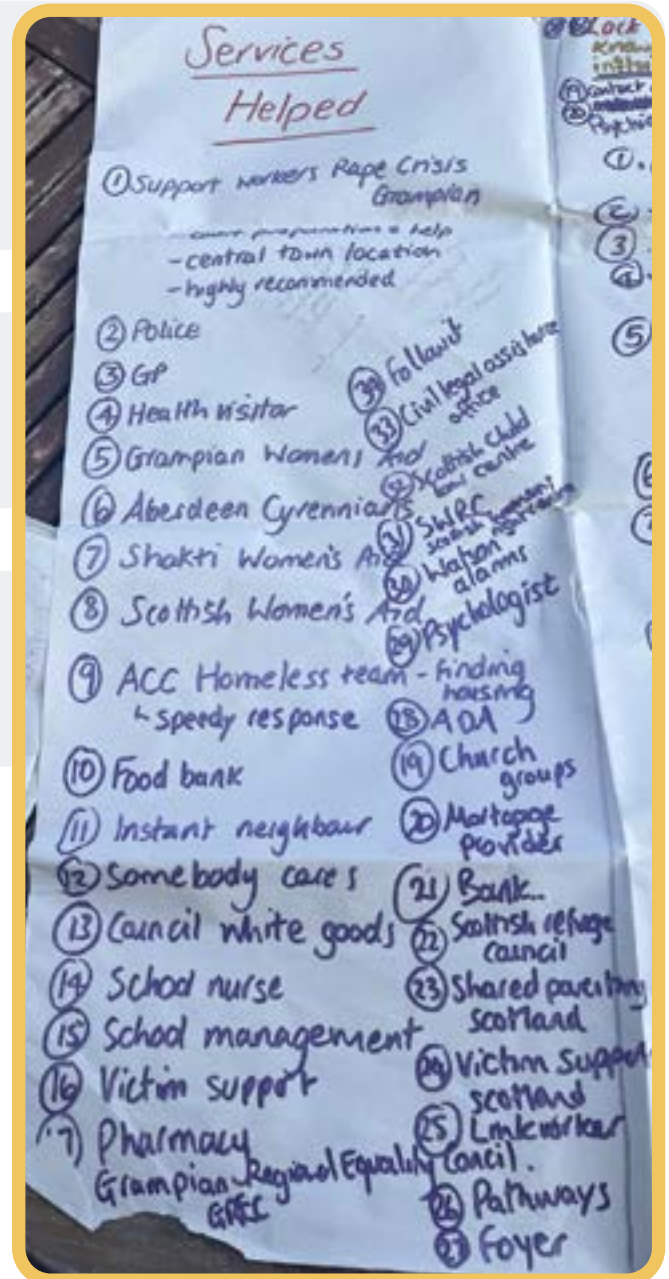 Services
Helped
① Support workers Rape Crisis
Grampian
- court preparation & help
- central town location
- highly recommended
② Police
③ GP
④ Health visitor
⑤ Grampian Womens Aid
⑥ Aberdeen Cyrennians
⑦ Shakti Women's Aid
⑧ Scottish Women's Aid
⑨ ACC Homeless team - finding
housing
↳ speedy response
⑩ Food bank
⑪ Instant neighbour
⑫ Somebody cares
⑬ Council white goods
⑭ School nurse
⑮ School management
⑯ Victim support
⑰ Pharmacy
Grampian Regional Equality Concil.
GREC
Followit
㉝ Civil legal assistance
office
㉜ Scottish Child
law centre
㉛ SWRC
㉚ Watson
alarms
㉙ Psychologist
㉘ ADA
⑲ Church
groups
⑳ Mortgage
provider
㉑ Bank..
㉒ Scottish refuge
council
㉓ Shared parenting
scotland
㉔ Victim Support
scotland
㉕ Linkworker
㉖ Pathways
㉗ Foyer
Lock
⑲ contact
⑳
①.
②
③
④
⑤